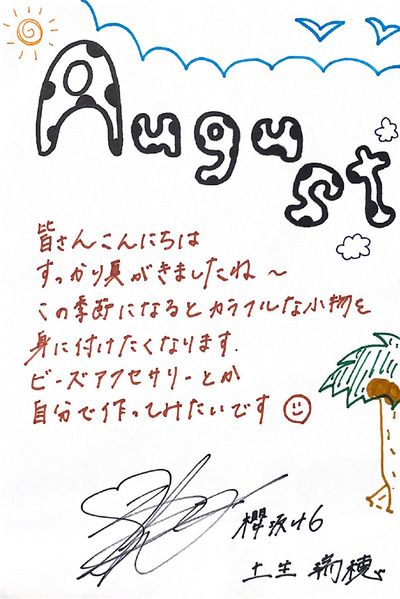 August
皆さんこんにちは
すっかり夏がきましたね～
この季節になるとカラフルな小物を
身に付けたくなります.
ビーズアクセサリーとか
自分で作ってみたいです
欅坂46
土生 瑞穂